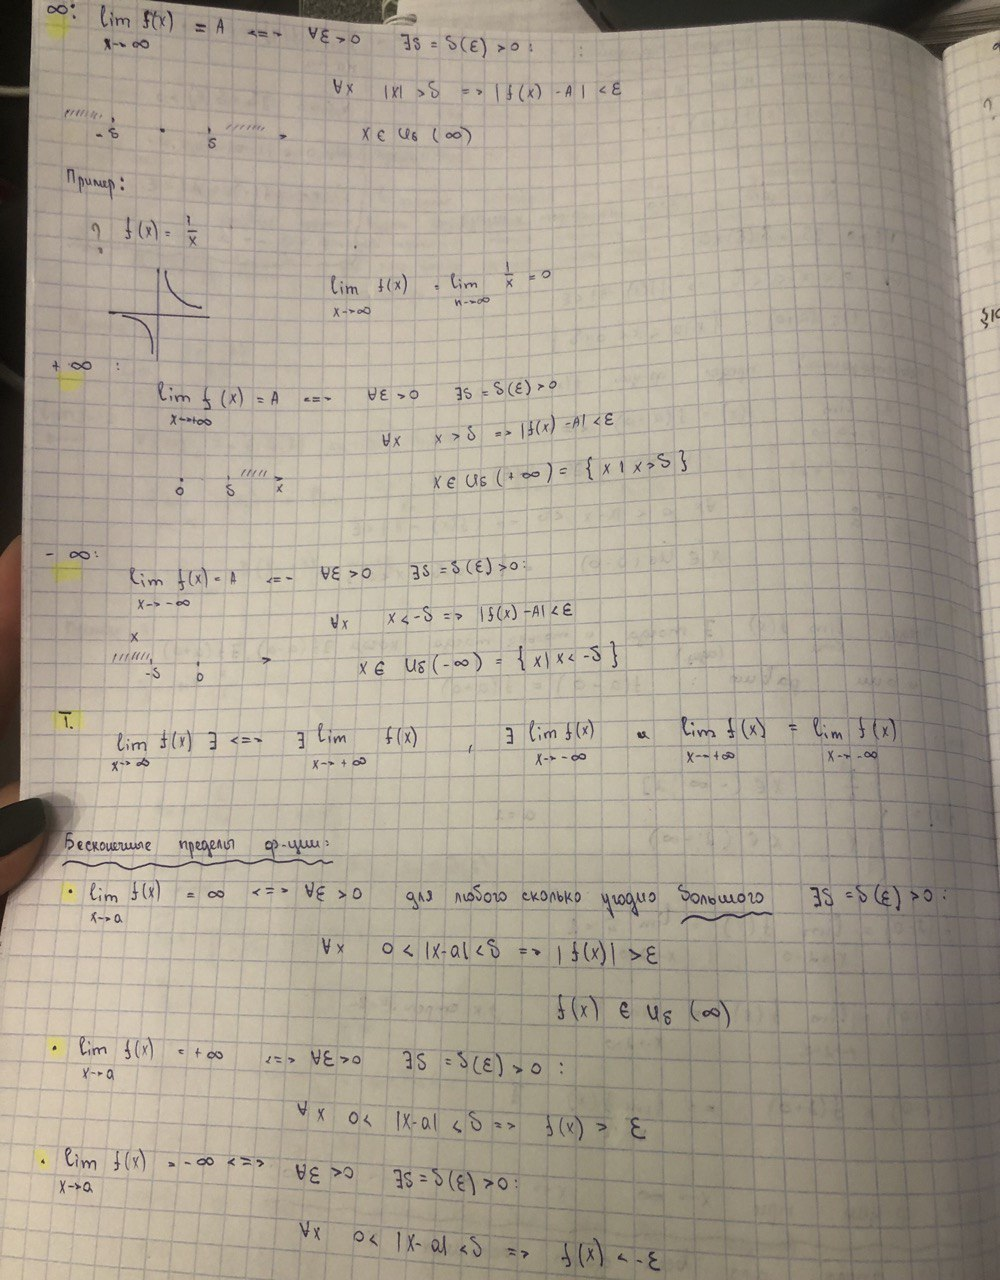 ∞: lim f(x) = A <=> ∀ε>0 ∃δ = δ(ε) > 0 :
x→∞
∀x |x| > δ => |f(x) - A| < ε
-δ δ x ∈ Uδ (∞)
Пример:
? f(x) = 1/x
lim f(x) = lim 1/x = 0
x→∞ n→∞
+∞ :
lim f(x) = A <=> ∀ε>0 ∃δ = δ(ε) > 0
x→+∞
∀x x > δ => |f(x) - A| < ε
0 δ x x ∈ Uδ (+∞) = { x | x > δ }
-∞:
lim f(x) = A <=> ∀ε>0 ∃δ = δ(ε) > 0:
x→-∞
∀x x < -δ => |f(x) - A| < ε
x
-δ 0 x ∈ Uδ (-∞) = { x | x < -δ }
Т.
lim f(x) ∃ <=> ∃ lim f(x) , ∃ lim f(x) и lim f(x) = lim f(x)
x→∞ x→+∞ x→-∞ x→+∞ x→-∞
Бесконечные пределы ф-ции:
• lim f(x) = ∞ <=> ∀ε > 0 для любого сколько угодно большого ∃δ = δ(ε) > 0 :
x→a
∀x 0 < |x-a| < δ => |f(x)| > ε
f(x) ∈ Uε (∞)
• lim f(x) = +∞ <=> ∀ε>0 ∃δ = δ(ε) > 0 :
x→a
∀x 0 < |x-a| < δ => f(x) > ε
• lim f(x) = -∞ <=> ∀ε>0 ∃δ = δ(ε) > 0 :
x→a
∀x 0 < |x-a| < δ => f(x) < -ε